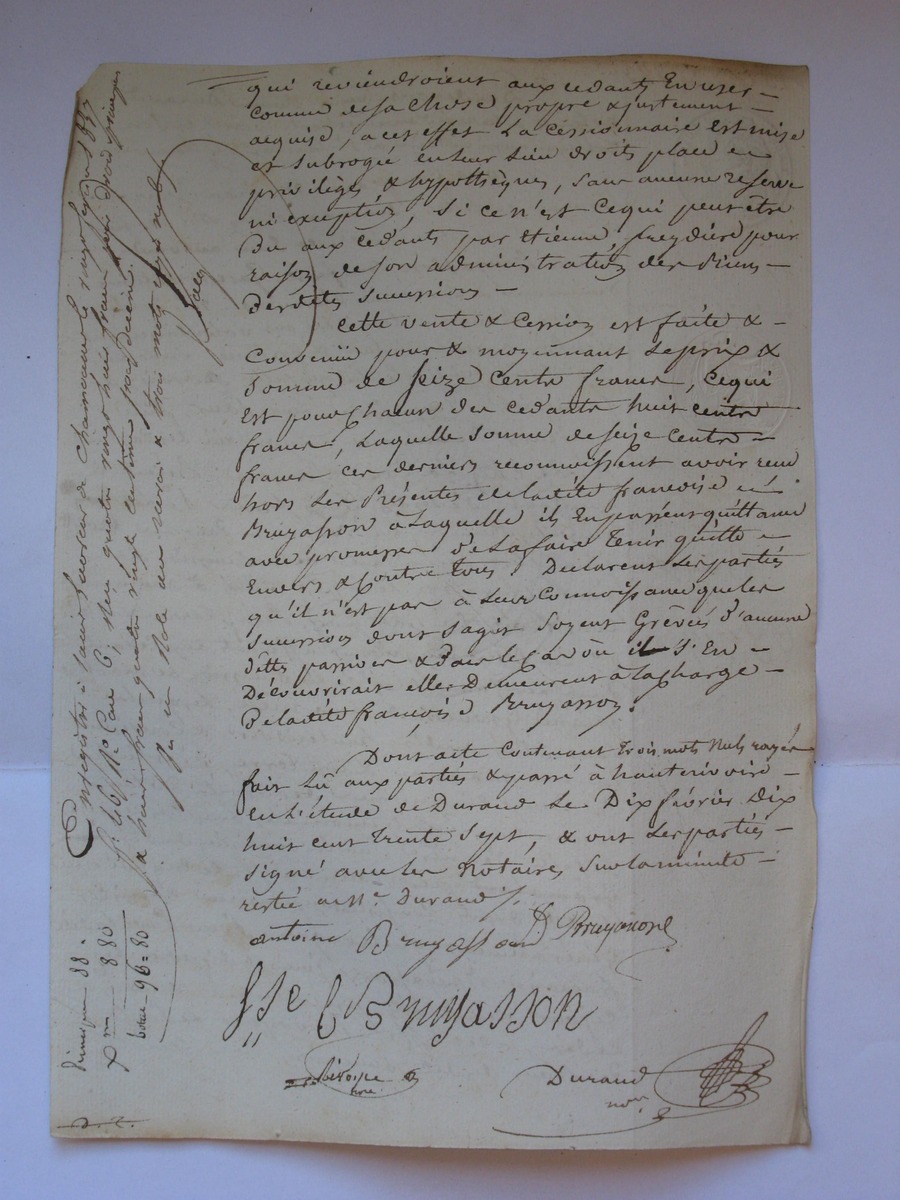 qui reviendroient aux cedants En user
comme de sa chose propre & justement
acquise, a cet effet La cessionnaire est mise
et subrogée en leur Lieu droits place et
privilèges & hypothèques, sans aucune reserve
ni exception, Si ce n'est Cequi peut être
Du aux cedants par Etienne freydière pour
raison de son administration des Biens
desdites successions
Cette vente & Cession est faite &
Convenüe pour & moyennant Le prix &
Somme de Seize Cents francs, cequi
Est pour Chacun des cedants huit cents
francs, Laquelle somme de seize Cents
francs ces derniers reconnoissent avoir reçu
hors Les Présentes de ladite françoise
Bruyasson à Laquelle ils En passent quittance
avec promesse De La faire Tenir quitte
Envers & Contre Tous. Déclarent Les parties
qu'il n'est pas à Leur Connoissance que les
succession dont s'agit Soyent Grévées D'aucune
dette passives & Dans le Cas où il S'En
Découvrirait elles Demeurent à La charge
De ladite françoise Bruyasson.
Dont acte Contenant Trois mots Nuls rayés
fait Lû aux parties & passé à hauterivoire
En L'étude de Durand Le Dix février Dix
huit cent Trente Sept, & ont Les parties
signé avec Les Notaires Sur La minute
restée à Me. Durand
antoine Bruyasson Bruyasson
fse Bruyasson
Durand
nore
Enregistré à Saint Laurent de Chamousset le vingt 1837
fo 46, Ro Case 6, Reçu quatre vingt huit francs pour droit principal
& huit francs quatre vingt centimes pour décime.
un Role au verso & trois mots rayés nuls
Principal 88 "
Xme 8 80
total 96=80